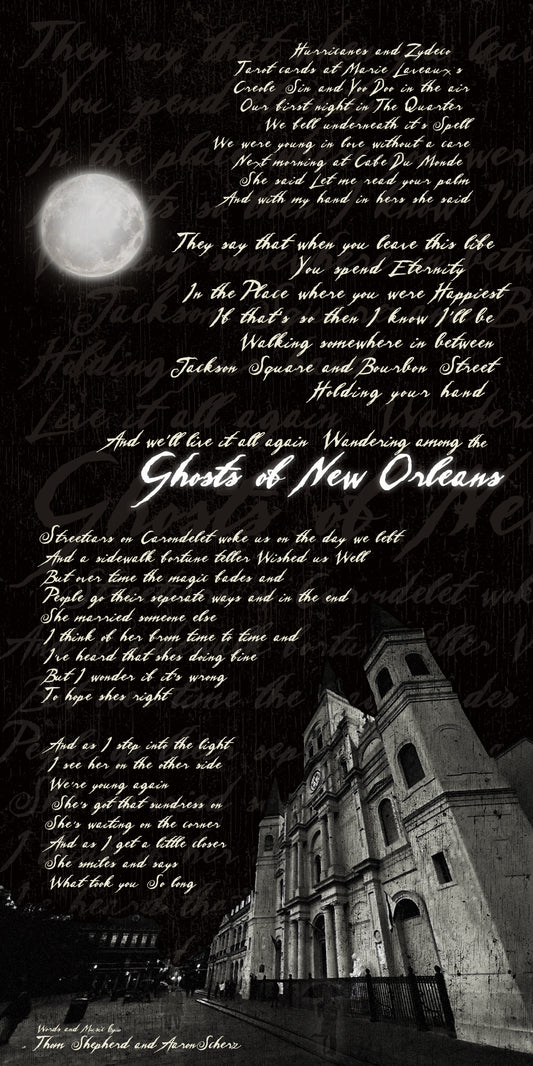 Hurricanes and Zydeco
Tarot cards at Marie Laveaux's
Creole Sin and Voo Doo in the air
Our first night in The Quarter
We fell underneath it's Spell
We were young in love without a care
Next morning at Cafe Du Monde
She said Let me read your palm
And with my hand in hers she said
They say that when you leave this life
You spend Eternity
In the Place where you were Happiest
If that's so then I know I'll be
Walking somewhere in between
Jackson Square and Bourbon Street
Holding your hand
And we'll live it all again Wandering among the
Ghosts of New Orleans
Streetcars on Carondelet woke us on the day we left
And a sidewalk fortune teller Wished us Well
But over time the magic fades and
People go their seperate ways and in the end
She married someone else
I think of her from time to time and
I've heard that shes doing fine
But I wonder if it's wrong
To hope shes right
And as I step into the light
I see her on the other side
We're young again
She's got that sundress on
She's waiting on the corner
And as I get a little closer
She smiles and says
What took you So long
Words and Music by
Thom Shepherd and Aaron Scherz